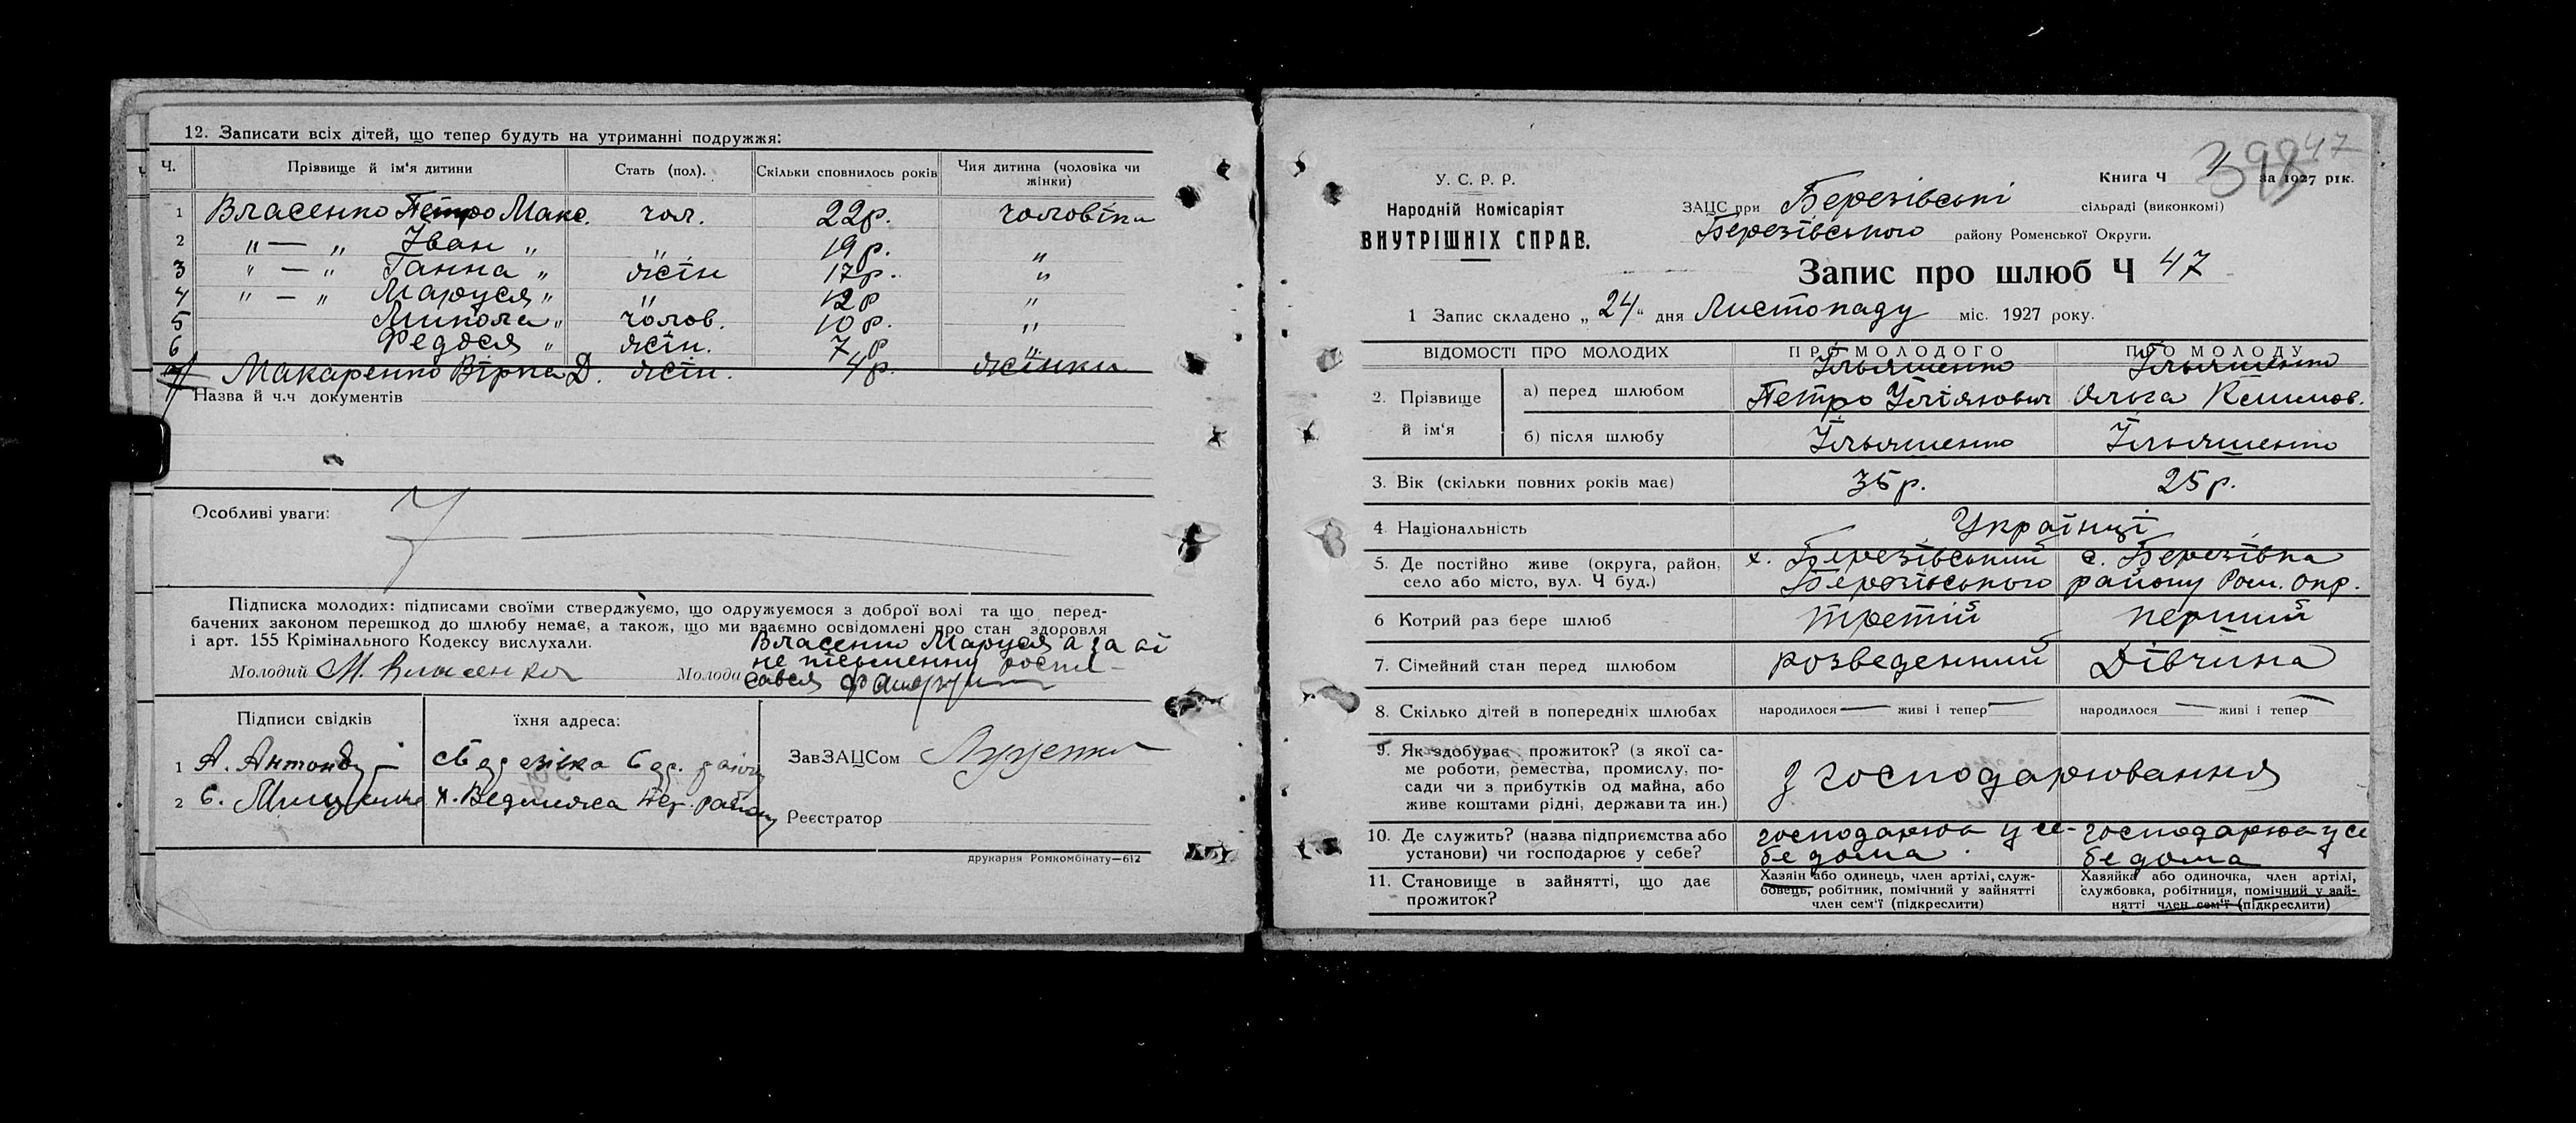 12. Записати всіх дітей, що тепер будуть на утриманні подружжя:
Ч. Прізвище й ім'я дитини Стать (пол). Скільки сповнилось років Чия дитина (чоловіка чи жінки)
1 Власенко Петро Макс. чол. 22р. чоловіка
2 "—" Іван " " 19р. "
3 "—" Ганна " жін 17р. "
4 "—" Маруся " " 12р "
5 Микола " чолов. 10р. "
6 Федося " жін. 7р "
7 Макаренко Вірка Д. жін. 4р. жінки
Назва й ч.ч документів
Особливі уваги:
Підписка молодих: підписами своїми стверджуємо, що одружуємося з доброї волі та що перед-
бачених законом перешкод до шлюбу немає, а також, що ми взаємно освідомлені про стан здоровля
і арт. 155 Крімінального Кодексу вислухали.
Молодий М. Власенко
Молода Власенко Маруся а за її
не письменну роспи-
сався
Підписи свідків їхня адреса:
1 А.
2 Є. х.
ЗавЗАЦСом Луценко
Реєстратор
друкарня Ромкомбінату—612
47
У. С. Р. Р.
Народній Комісаріят
ВНУТРІШНІХ СПРАВ.
Книга Ч за 1927 рік.
ЗАЦС при Березівські сільраді (виконкомі)
Березівського району Роменської Округи.
Запис про шлюб Ч 47
1 Запис складено „24" дня Листопаду міс. 1927 року.
ВІДОМОСТІ ПРО МОЛОДИХ ПРО МОЛОДОГО ПРО МОЛОДУ
2. Прізвище й ім'я
а) перед шлюбом Ільяшенко Петро Ільяшенко Ольга Климов.
б) після шлюбу Ільяшенко Ільяшенко
3. Вік (скільки повних років має) 35р. 25р.
4. Національність Українці
5. Де постійно живе (округа, район, х. Березівський с. Березівка
село або місто, вул. Ч буд.) Березівського району Ром. окр.
6 Котрий раз бере шлюб третій перший
7. Сімейний стан перед шлюбом розведенний Дівчина
8. Скілько дітей в попередніх шлюбах народилося — живі і тепер — народилося — живі і тепер —
9. Як здобуває прожиток? (з якої са-
ме роботи, ремества, промислу, по-
сади чи з прибутків од майна, або
живе коштами рідні, держави та ин.)
З господарювання
10. Де служить? (назва підприємства або господарює у се- господарює у се
установи) чи господарює у себе? бе дома. бе дома
11. Становище в зайнятті, що дає
прожиток?
Хазяїн або одинець, член артілі, служ-
бовець, робітник, помічний у зайнятті
член сем'ї (підкреслити)
Хазяйка або одиночка, член артілі,
службовка, робітниця, помічний у зай-
нятті член сем'ї (підкреслити)